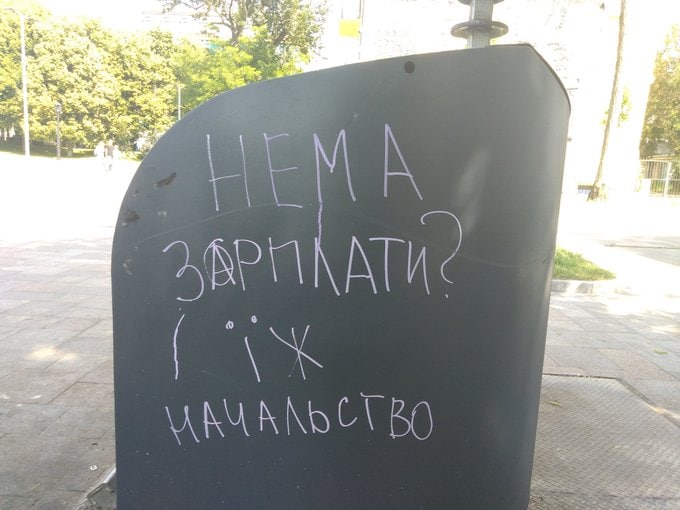 НЕМА
ЗАРПЛАТИ?
І ЇЖ
НАЧАЛЬСТВО